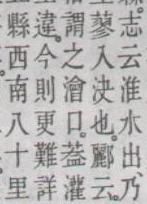 志云淮水出乃
蓼入決也。酈云。
謂之澮口。蓋灌
違。今則更難詳
縣西南八十里